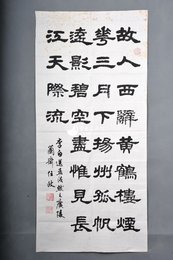 故人西辭黃鶴樓煙
花三月下揚州孤帆
遠影碧空盡惟見長
江天際流
李白送孟浩然之廣陵